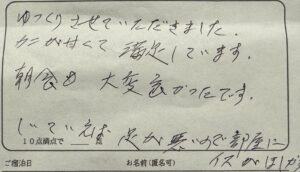 ゆっくりさせていただきました.
カニが甘くて 満足しています.
朝食も 大変良かったです.
しいていえば 足が悪いので部屋に
イスがほしか
10点満点で 点
ご宿泊日 お名前(匿名可)